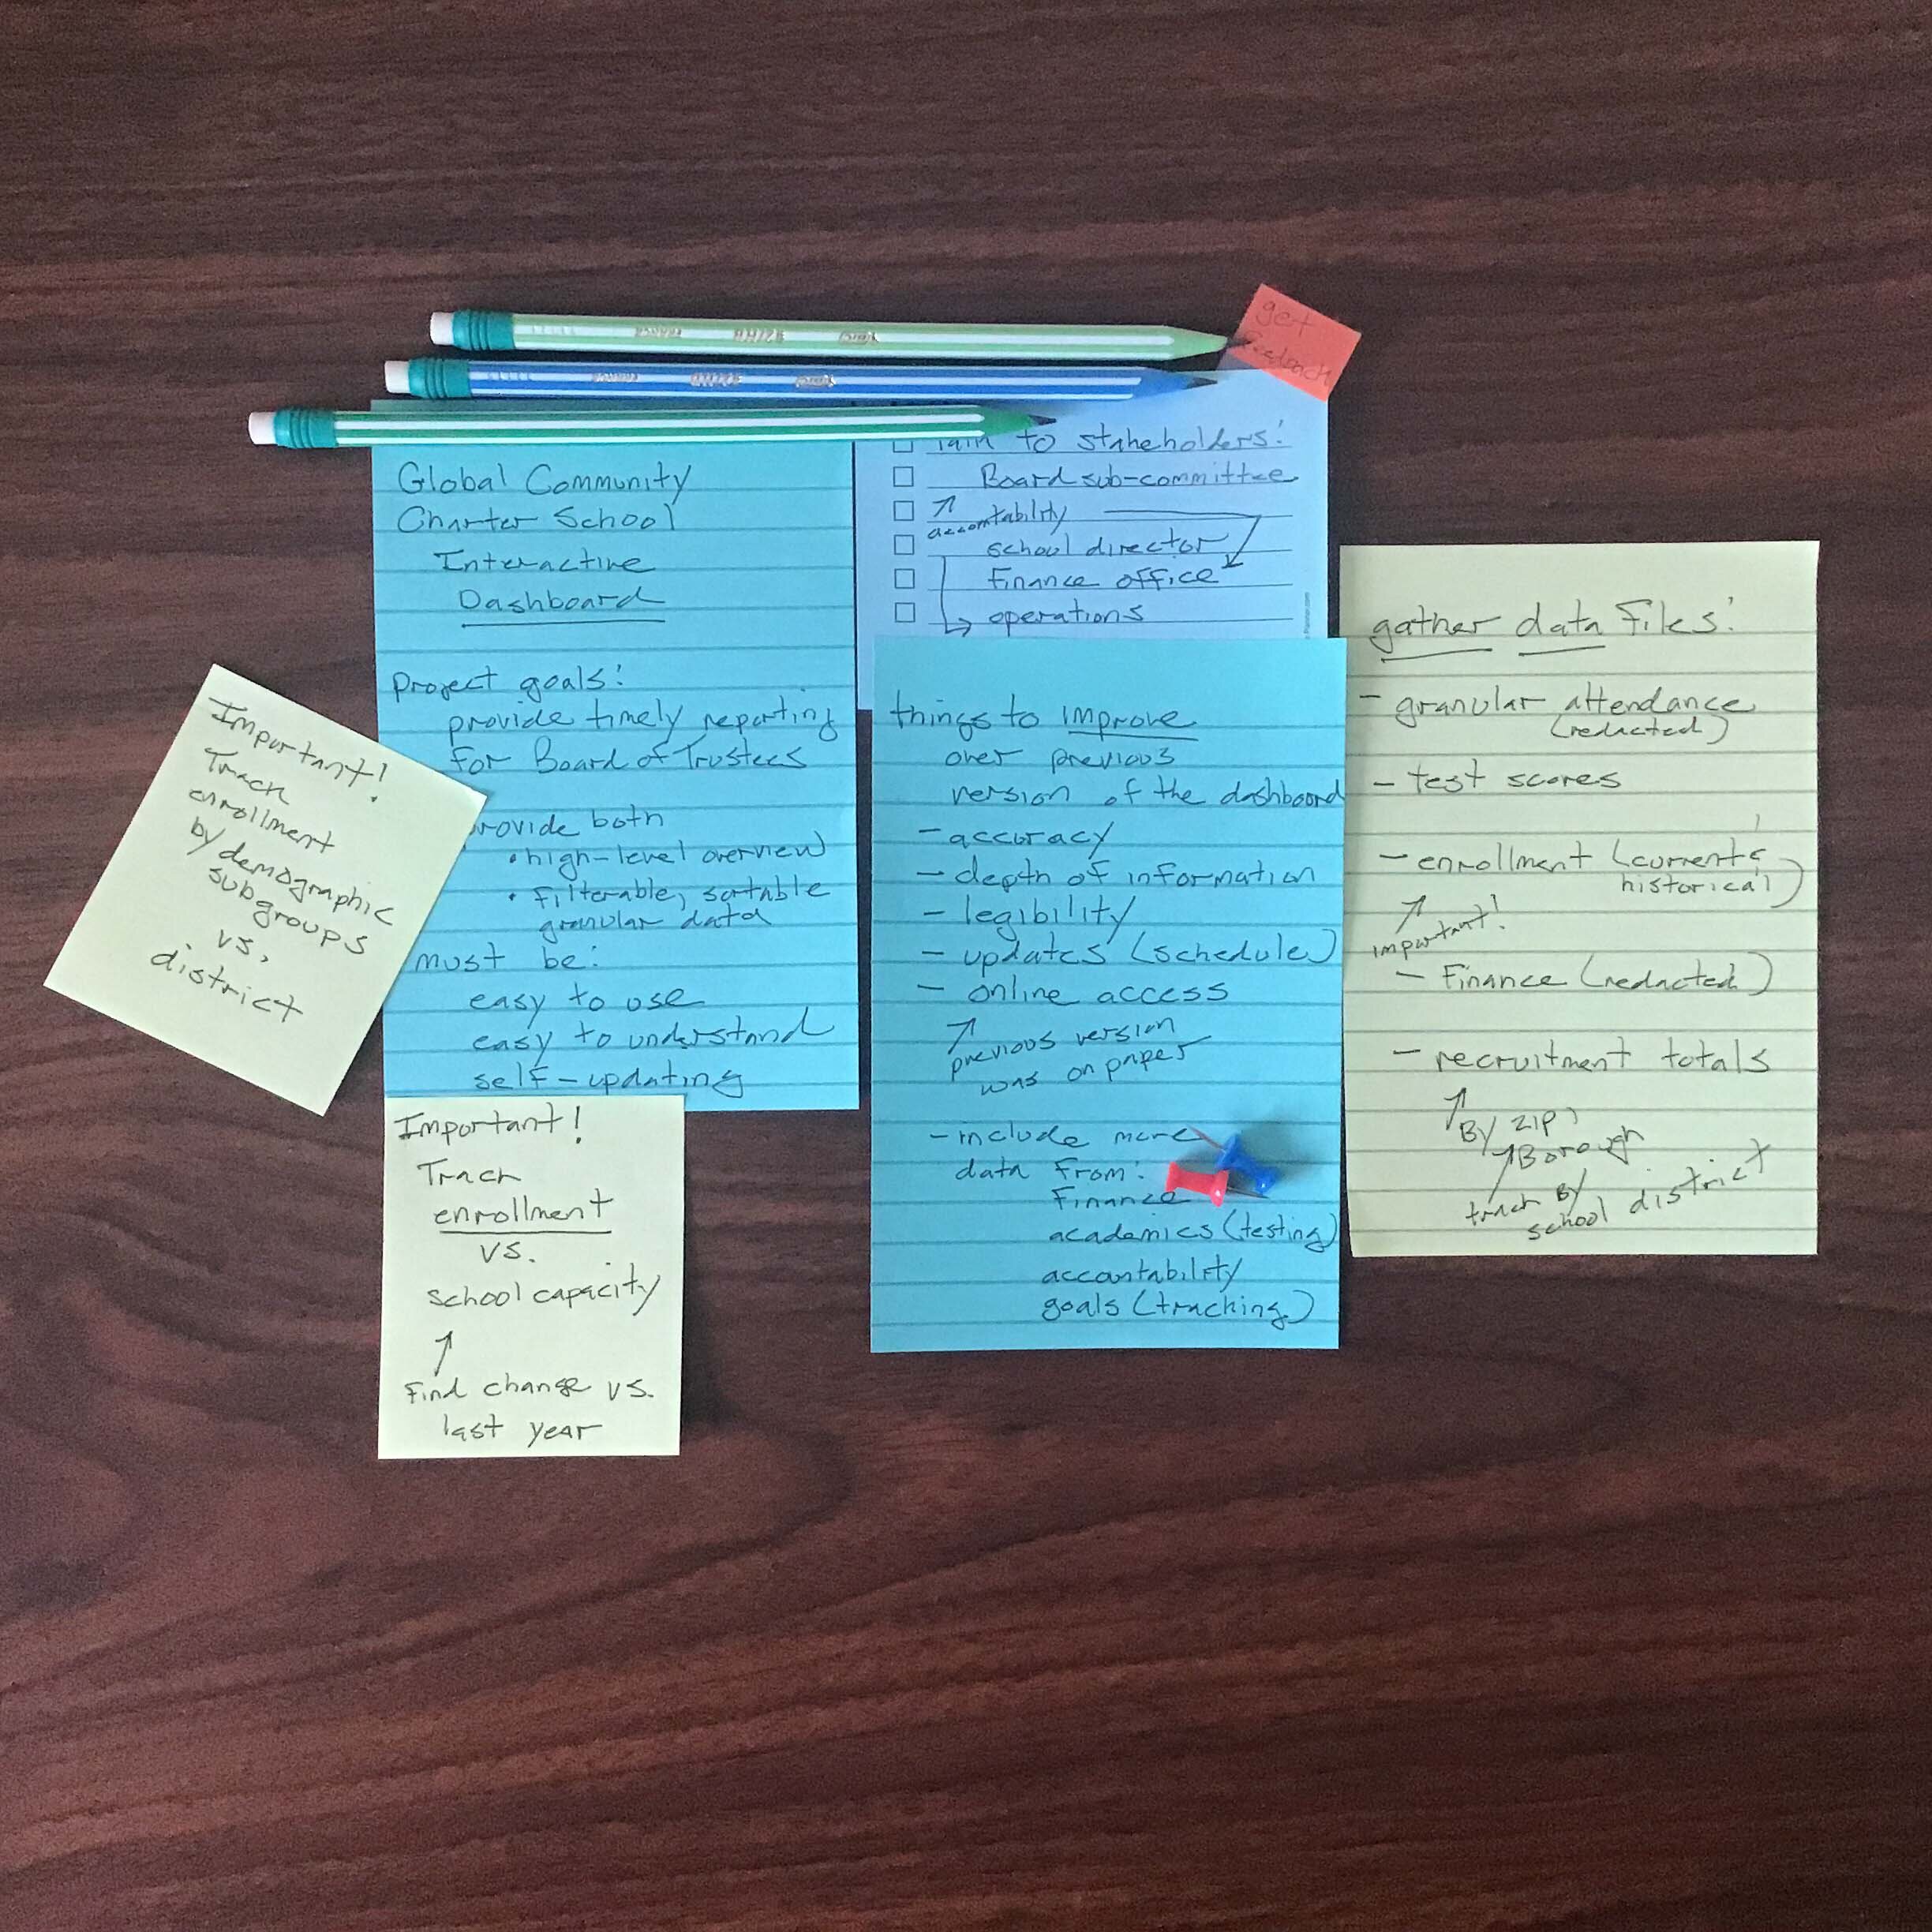 get
feedback
talk to stakeholders:
Board sub-committee
accountability
school director
finance office
operations
Global Community
Charter School
Interactive
Dashboard
project goals:
provide timely reporting
for Board of Trustees
provide both
• high-level overview
• filterable, sortable
granular data
must be:
easy to use
easy to understand
self-updating
Important!
Track
enrollment
by demographic
subgroups
vs.
district
Important!
Track
enrollment
vs.
school capacity
find change vs.
last year
things to improve
over previous
version of the dashboard
- accuracy
- depth of information
- legibility
- updates (schedule)
- online access
previous version
was on paper
- include more
data from:
finance
academics (testing)
accountability
goals (tracking)
gather data files:
- granular attendance
(redacted)
- test scores
- enrollment (current &
historical)
important!
- finance (redacted)
- recruitment totals
By zip,
Borough
track by
school district